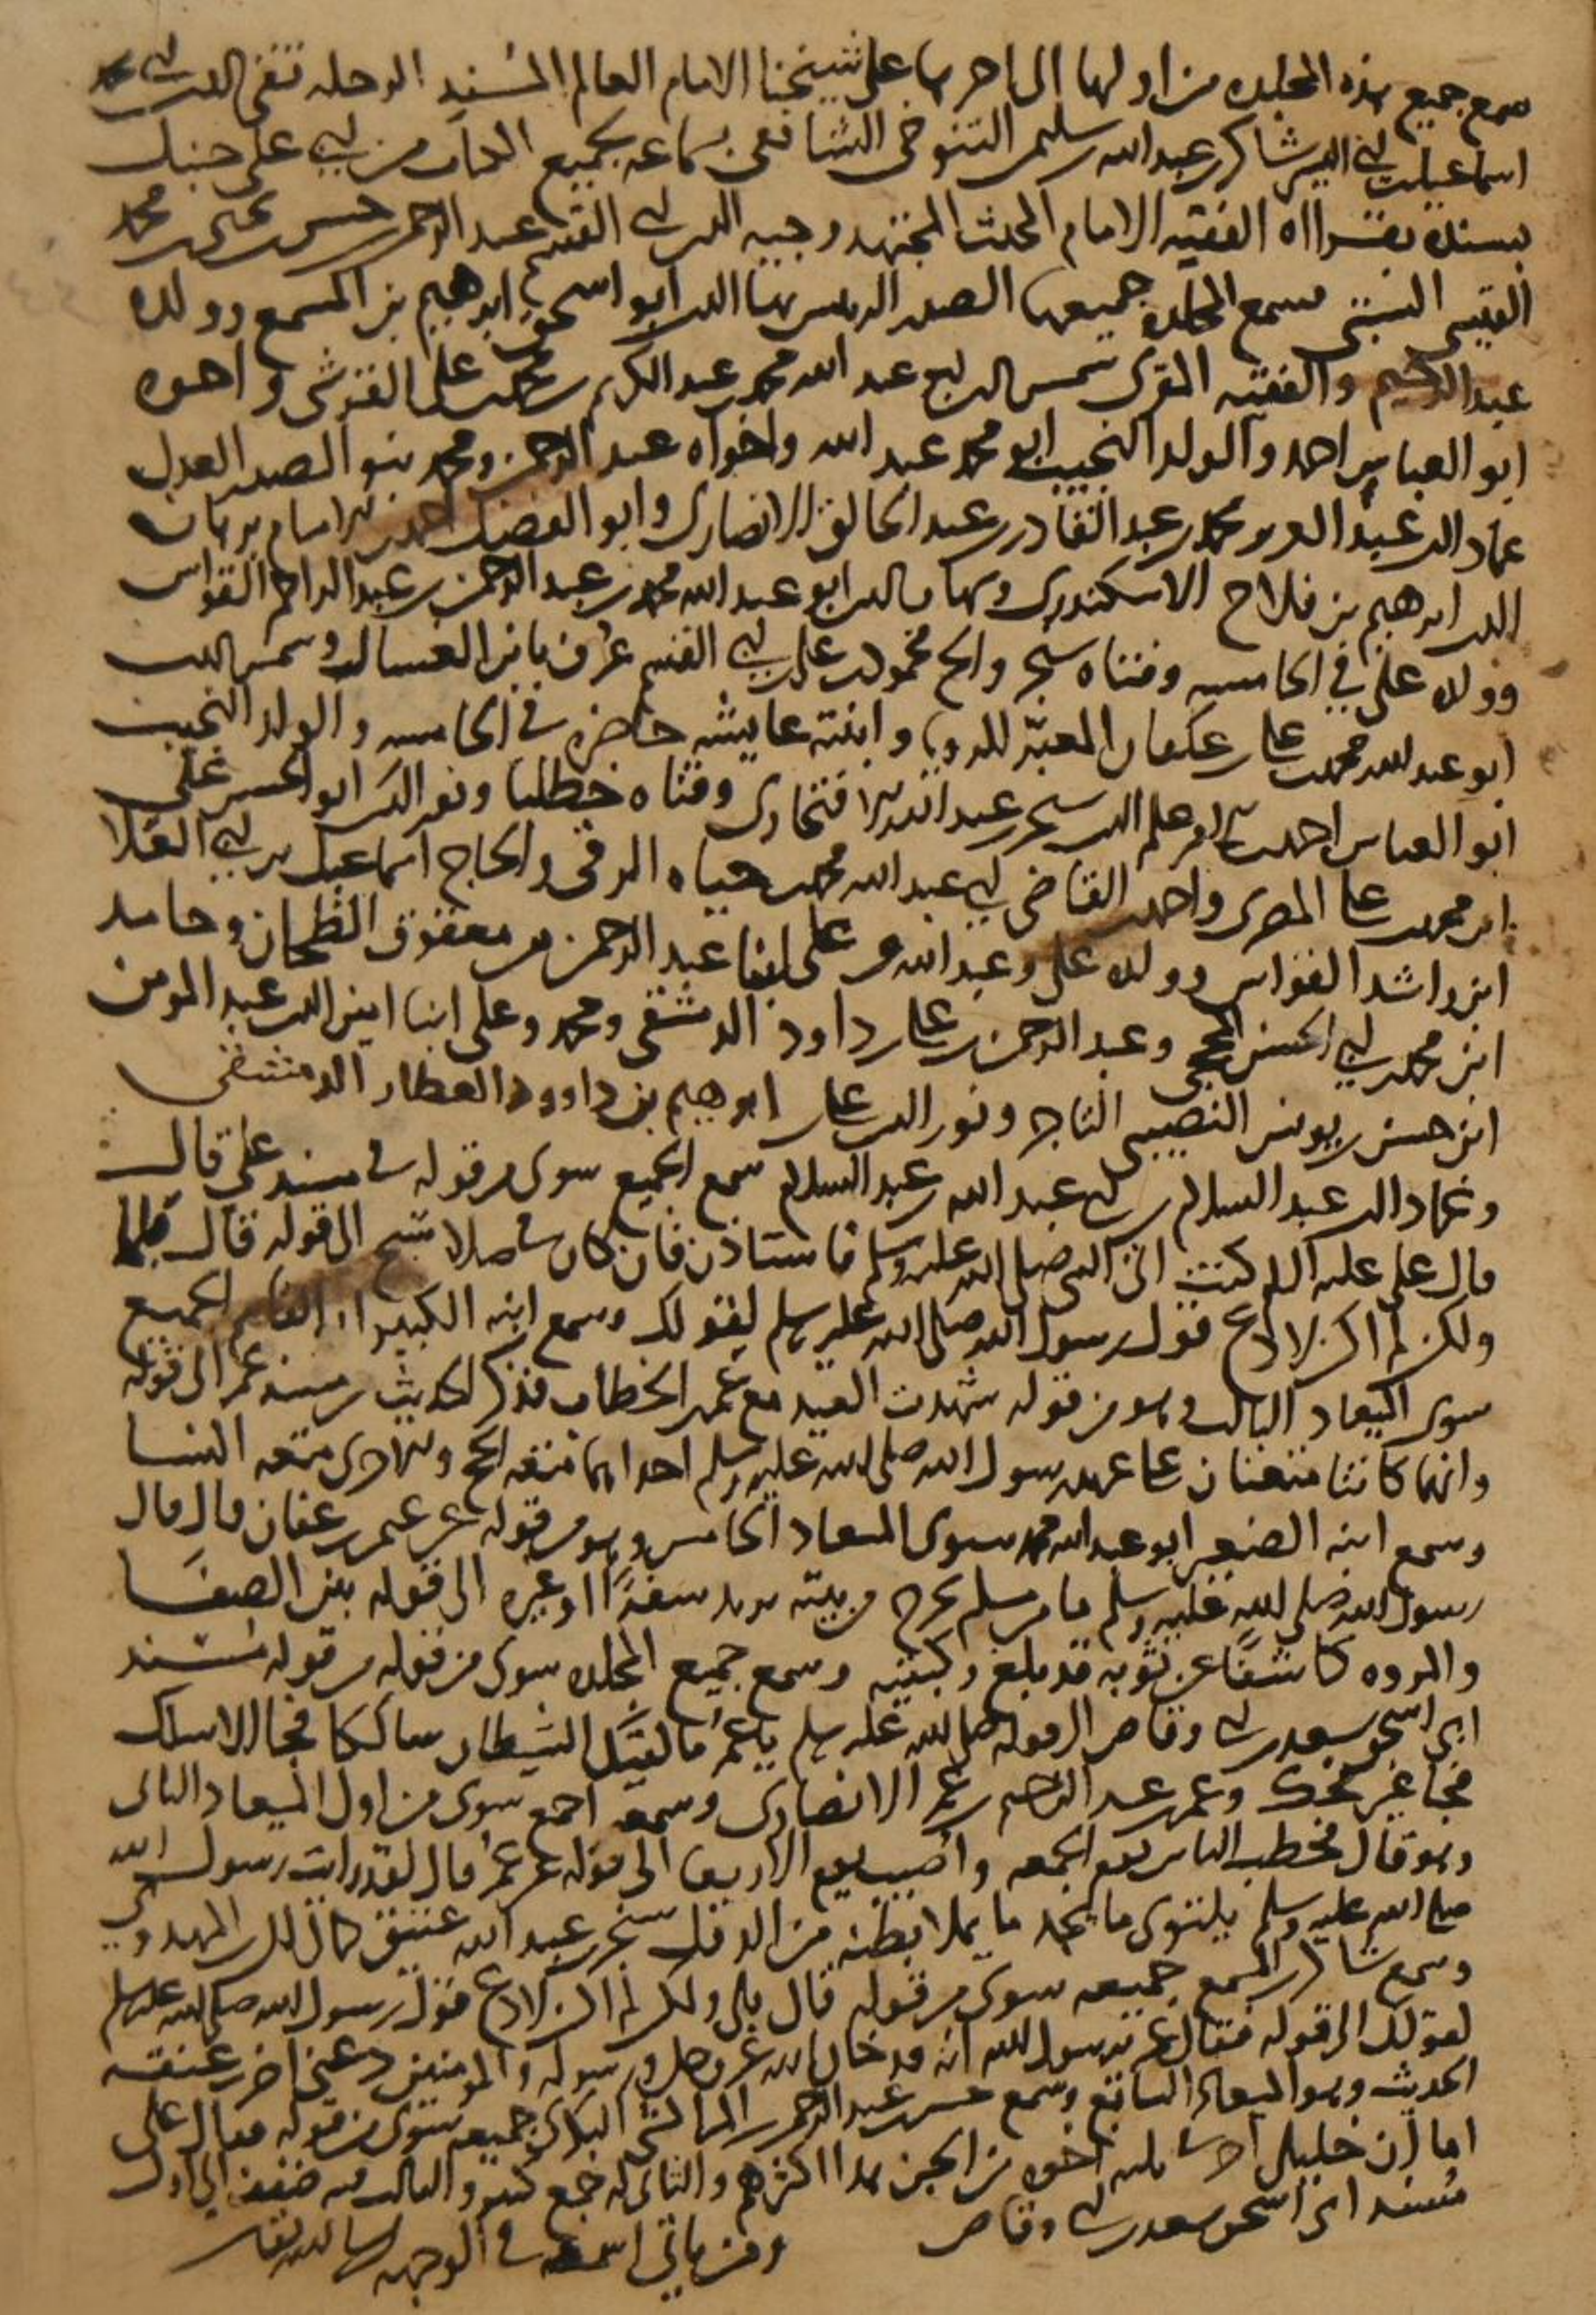 سمع جميع هذه المجلده من اولها الى اخرها على شيخنا الامام العالم المسند الرحله تقي الدين ابي محمد
اسماعيل بن ابي اليسر شاكر بن عبد الله بن سليمن التنوخي الشافعي بسماعه بجميع الكتاب من ابي علي حنبل
بسنده بقراة الفقيه الامام المحدث المجتهد وجيه الدين ابي القسم عبد الرحمن بن حسن بن يحيى بن محمد
القيسي السبتي فسمع المجلده جميعها الصدر الرئيس بها الدين ابو اسحق ابرهيم بن المسمع وولده
عبد الرحيم والفقيه المقرى شمس الدين ابو عبد الله محمد بن عبد الكريم بن محمد بن علي القرشي واخوه
ابو العباس احمد والولد النجيب ابو محمد عبد الله واخواه عبد الرحمن ومحمد بنو الصدر العدل
عماد الدين عبد العزيز بن محمد بن عبد القادر بن عبد الخالق الانصاري وابو الفضل احمد بن الامام برهان
الدين ابرهيم بن فلاح الاسكندري وشهاب الدين ابو عبد الله محمد بن عبد الرحمن بن عبد الواحد القواس
وولده علي في الخامسه وفتاه سنجر والحاج محمود بن علي بن ابي القسم عرف بابن الغسال وشمس الدين
ابو عبد الله محمد بن علي بن المعبر للرويا وابنته عايشه حاضره في الخامسه والولد النجيب
ابو العباس احمد بن الامير علم الدين سنجر بن عبد الله الافتخاري وفتاه خطلبا ونور الدين ابو الحسن علي
ابن محمد بن علي المصري واحمد بن القاضي ابي عبد الله محمد بن حياه الرقي والحاج اسماعيل بن ابي العلا
ابن راشد القواس وولده علي وعبد الله وعلي ابنا عبد الرحمن بن معقوق الطحان وحامد
ابن محمد بن ابي الحسن وعبد الرحمن بن علي بن داود الدمشقي ومحمد وعلي ابنا امين الدين عبد المومن
ابن حسن بن يونس النصيبي التاجر ونور الدين علي بن ابرهيم بن داوود العطار الدمشقي
وعماد الدين عبد السلام بن ابي عبد الله بن عبد السلام سمع الجميع سوى من قوله في مسند علي قال
قال علي عليه السلام كنت اتي النبي صلى الله عليه وسلم فاستاذن فان كان في صلاة سبح الى قوله قال
ولكن لم اكن لادع قول رسول الله صلى الله عليه وسلم لقولك وسمع ابنه الكبير ابو القسم الجميع
سوى الميعاد الثالث وهو من قوله شهدت العيد مع عمر بن الخطاب فذكر الحديث من مسند عمر الى قوله
وانهما كانتا متعتان على عهد رسول الله صلى الله عليه وسلم احداهما متعه الحج والاخرى متعه النسا
وسمع ابنه الصغير ابو عبد الله محمد سوى الميعاد الخامس وهو من قوله عن عثمن بن عفان قال قال
رسول الله صلى الله عليه وسلم ما من مسلم يخرج من بيته يريد سفرا او غيره الى قوله بين الصفا
والمروه كاشفا عن ثوبه قد بلغ ركبتيه وسمع جميع المجلده سوى من قوله من قوله مسند
ابي اسحق سعد بن ابي وقاص الى قوله صلى الله عليه وسلم يا عمر ما لقيك الشيطان سالكا فجا الا سلك
فجا غير فجك وعمر بن عبد الرحيم بن عمر الانصاري وسمعه اجمع سوى من اول الميعاد الثاني
وهو قال فخطب الناس يوم الجمعه واصيب يوم الاربعا الى قوله عن عمر قال لقد رايت رسول الله
صلى الله عليه وسلم يلتوي ما يجد ما يملا بطنه من الدقل سنجر بن عبد الله عتيق
وسمع شاكر بن المسمع جميعه سوى من قوله قال بلى ولكن لم اكن لادع قول رسول الله صلى الله عليه وسلم
لقولك الى قوله فقال عمر يرسول الله انه قد خان الله عز وجل ورسوله والمومنين دعني اضرب عنقه
الحديث وهو الميعاد السابع وسمع حسن بن عبد الرحمن جميعه سوى من قوله فقال علي
اما ان خليلي اخوه من الجن هذا اكثرهم والثاني له جمع كبير والثالث الى اول
مسند ابي اسحق سعد بن ابي وقاص
ومن ياتي اسمه في الوجهه